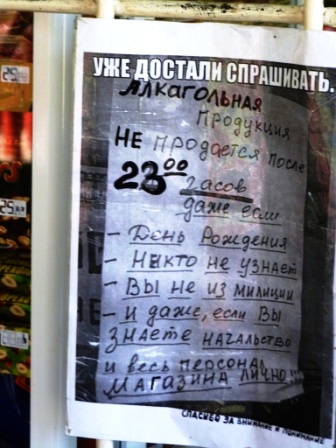 УЖЕ ДОСТАЛИ СПРАШИВАТЬ.
АЛКАГОЛЬНАЯ
ПРОДУКЦИЯ
НЕ ПРОДАЕТСЯ ПОСЛЕ
23 00 Часов
даже если
- День Рождения
- НИКТО НЕ УЗНАЕТ
- ВЫ НЕ ИЗ МИЛИЦИИ
- и даже, если ВЫ
ЗНАЕТЕ НАЧАЛЬСТВО
и весь персонал
МАГАЗИНА ЛИЧНО!!!
СПАСИБО ЗА ВНИМАНИЕ И ПОНИМАНИЕ